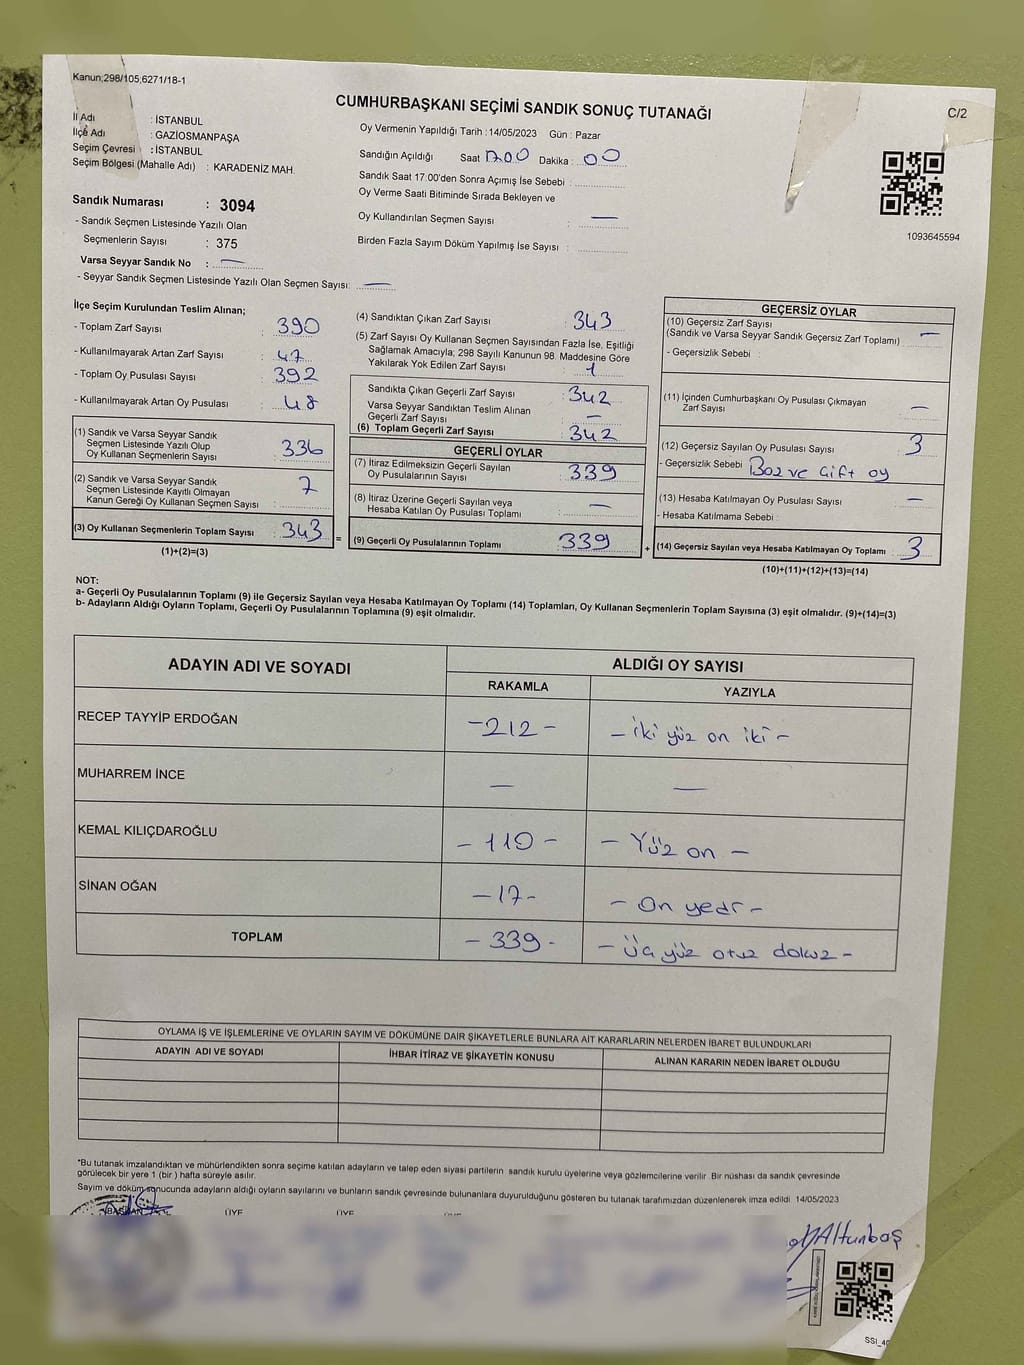 Kanun;298/105;6271/18-1
CUMHURBAŞKANI SEÇİMİ SANDIK SONUÇ TUTANAĞI
C/2
İl Adı : İSTANBUL
İlçe Adı : GAZİOSMANPAŞA
Seçim Çevresi : İSTANBUL
Seçim Bölgesi (Mahalle Adı) : KARADENİZ MAH.
Sandık Numarası : 3094
- Sandık Seçmen Listesinde Yazılı Olan
Seçmenlerin Sayısı : 375
Varsa Seyyar Sandık No : —
- Seyyar Sandık Seçmen Listesinde Yazılı Olan Seçmen Sayısı: —
Oy Vermenin Yapıldığı Tarih : 14/05/2023 Gün : Pazar
Sandığın Açıldığı Saat 17.00 Dakika : 00
Sandık Saat 17:00'den Sonra Açımış İse Sebebi :
Oy Verme Saati Bitiminde Sırada Bekleyen ve
Oy Kullandırılan Seçmen Sayısı : —
Birden Fazla Sayım Döküm Yapılmış İse Sayısı :
1093645594
İlçe Seçim Kurulundan Teslim Alınan;
- Toplam Zarf Sayısı : 390
- Kullanılmayarak Artan Zarf Sayısı : 47
- Toplam Oy Pusulası Sayısı : 392
- Kullanılmayarak Artan Oy Pusulası : 48
(1) Sandık ve Varsa Seyyar Sandık
Seçmen Listesinde Yazılı Olup
Oy Kullanan Seçmenlerin Sayısı : 336
(2) Sandık ve Varsa Seyyar Sandık
Seçmen Listesinde Kayıtlı Olmayan
Kanun Gereği Oy Kullanan Seçmen Sayısı : 7
(3) Oy Kullanan Seçmenlerin Toplam Sayısı : 343
(1)+(2)=(3)
=
(4) Sandıktan Çıkan Zarf Sayısı : 343
(5) Zarf Sayısı Oy Kullanan Seçmen Sayısından Fazla İse, Eşitliği
Sağlamak Amacıyla; 298 Sayılı Kanunun 98. Maddesine Göre
Yakılarak Yok Edilen Zarf Sayısı : 1
Sandıkta Çıkan Geçerli Zarf Sayısı : 342
Varsa Seyyar Sandıktan Teslim Alınan
Geçerli Zarf Sayısı : —
(6) Toplam Geçerli Zarf Sayısı : 342
GEÇERLİ OYLAR
(7) İtiraz Edilmeksizin Geçerli Sayılan
Oy Pusulalarının Sayısı : 339
(8) İtiraz Üzerine Geçerli Sayılan veya
Hesaba Katılan Oy Pusulası Toplamı : —
(9) Geçerli Oy Pusulalarının Toplamı : 339
+
GEÇERSİZ OYLAR
(10) Geçersiz Zarf Sayısı
(Sandık ve Varsa Seyyar Sandık Geçersiz Zarf Toplamı) : —
- Geçersizlik Sebebi :
(11) İçinden Cumhurbaşkanı Oy Pusulası Çıkmayan
Zarf Sayısı : —
(12) Geçersiz Sayılan Oy Pusulası Sayısı : 3
- Geçersizlik Sebebi Boz ve Çift oy
(13) Hesaba Katılmayan Oy Pusulası Sayısı : —
- Hesaba Katılmama Sebebi :
(14) Geçersiz Sayılan veya Hesaba Katılmayan Oy Toplamı : 3
(10)+(11)+(12)+(13)=(14)
NOT:
a- Geçerli Oy Pusulalarının Toplamı (9) ile Geçersiz Sayılan veya Hesaba Katılmayan Oy Toplamı (14) Toplamları, Oy Kullanan Seçmenlerin Toplam Sayısına (3) eşit olmalıdır. (9)+(14)=(3)
b- Adayların Aldığı Oyların Toplamı, Geçerli Oy Pusulalarının Toplamına (9) eşit olmalıdır.
ADAYIN ADI VE SOYADI ALDIĞI OY SAYISI
RAKAMLA YAZIYLA
RECEP TAYYİP ERDOĞAN -212- - iki yüz on iki -
MUHARREM İNCE — —
KEMAL KILIÇDAROĞLU - 110 - - Yüz on -
SİNAN OĞAN -17- - On yedi -
TOPLAM - 339 - - Üç yüz otuz dokuz -
OYLAMA İŞ VE İŞLEMLERİNE VE OYLARIN SAYIM VE DÖKÜMÜNE DAİR ŞİKAYETLERLE BUNLARA AİT KARARLARIN NELERDEN İBARET BULUNDUKLARI
ADAYIN ADI VE SOYADI İHBAR İTİRAZ VE ŞİKAYETİN KONUSU ALINAN KARARIN NEDEN İBARET OLDUĞU
*Bu tutanak imzalandıktan ve mühürlendikten sonra seçime katılan adayların ve talep eden siyasi partilerin sandık kurulu üyelerine veya gözlemcilerine verilir. Bir nüshası da sandık çevresinde
görülecek bir yere 1 (bir) hafta süreyle asılır.
Sayım ve döküm sonucunda adayların aldığı oyların sayılarını ve bunların sandık çevresinde bulunanlara duyurulduğunu gösteren bu tutanak tarafımızdan düzenlenerek imza edildi. 14/05/2023
BAŞKAN ÜYE ÜYE ÜYE
Altunbaş